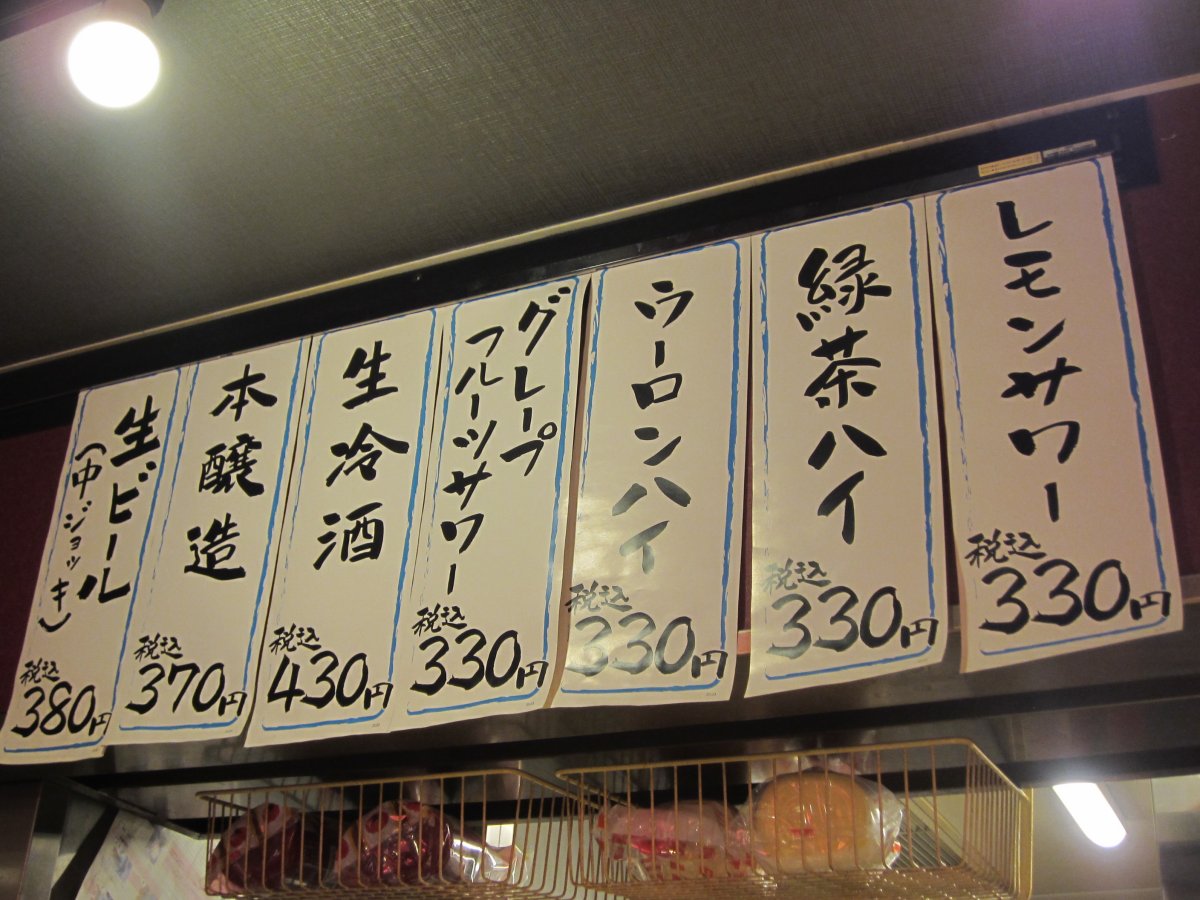 レモンサワー
税込
330円
緑茶ハイ
税込
330円
ウーロンハイ
税込
330円
グレープ
フルーツサワー
税込
330円
生冷酒
税込
430円
本醸造
税込
370円
生ビール
(中ジョッキ)
税込
380円